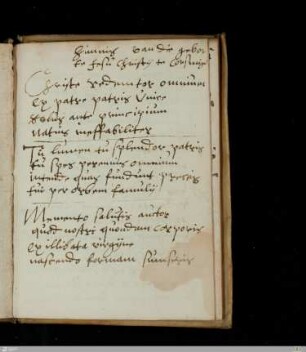 himnus van die gebor
te Jesu Christy te Corsmis
Christe redemtor omnium
Ex patre patris Unice
Solus ante principium
Natus ineffabiliter
Tu lumen tu splendor patris
tu spes perennis omnium
intende quas fundunt preces
tui per orbem famuly
Memento salutis auctor
quod nostri quondam corporis
ex illibata virgine
nascendo formam sumseris